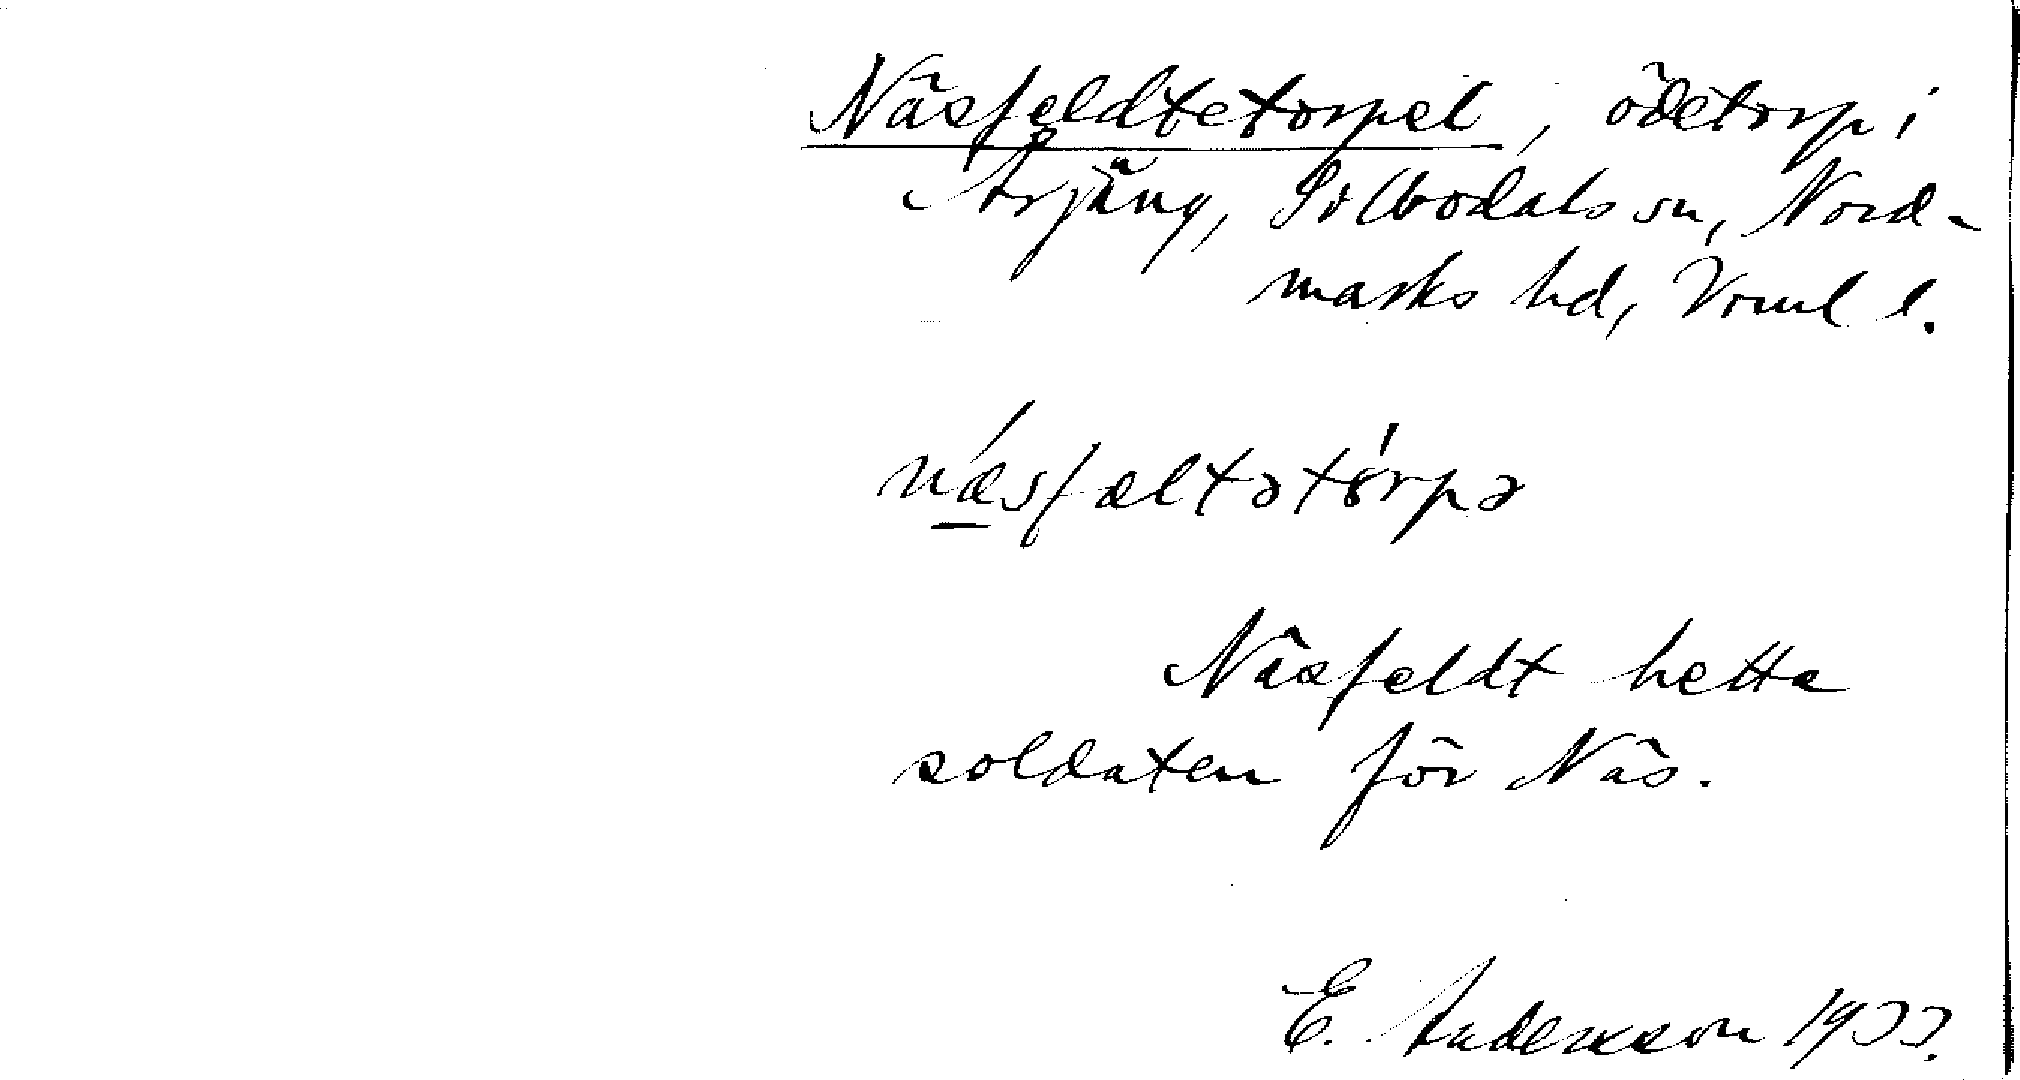 Näsfeldtetorpet, ödetorp i
Årjäng, Silbodals sn, Nord-
marks hd, Vrml l.
nǽsfæltətórpə
Näsfeldt hette
soldaten för Näs.
E. Andersson 1933.